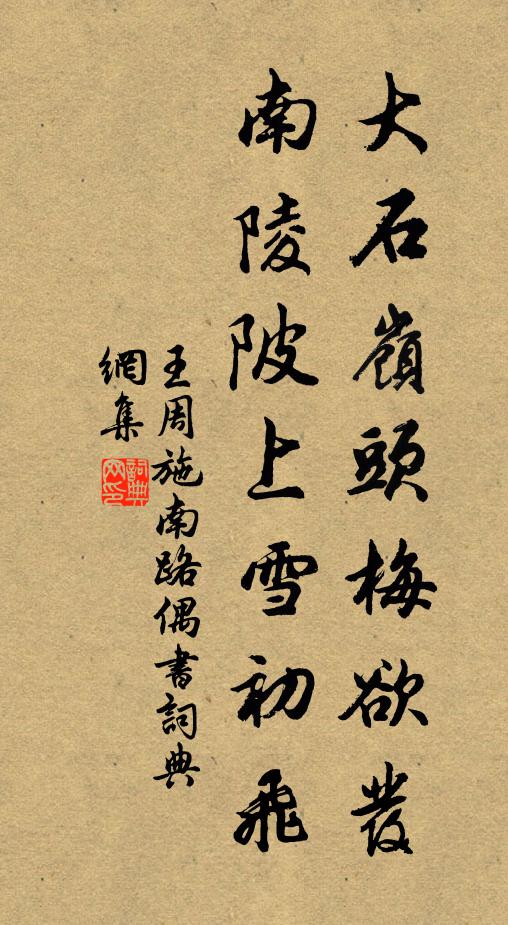 大石嶺頭梅欲發
南陵陂上雪初飛
王周施南路偶書詞典
網集
詞典網印